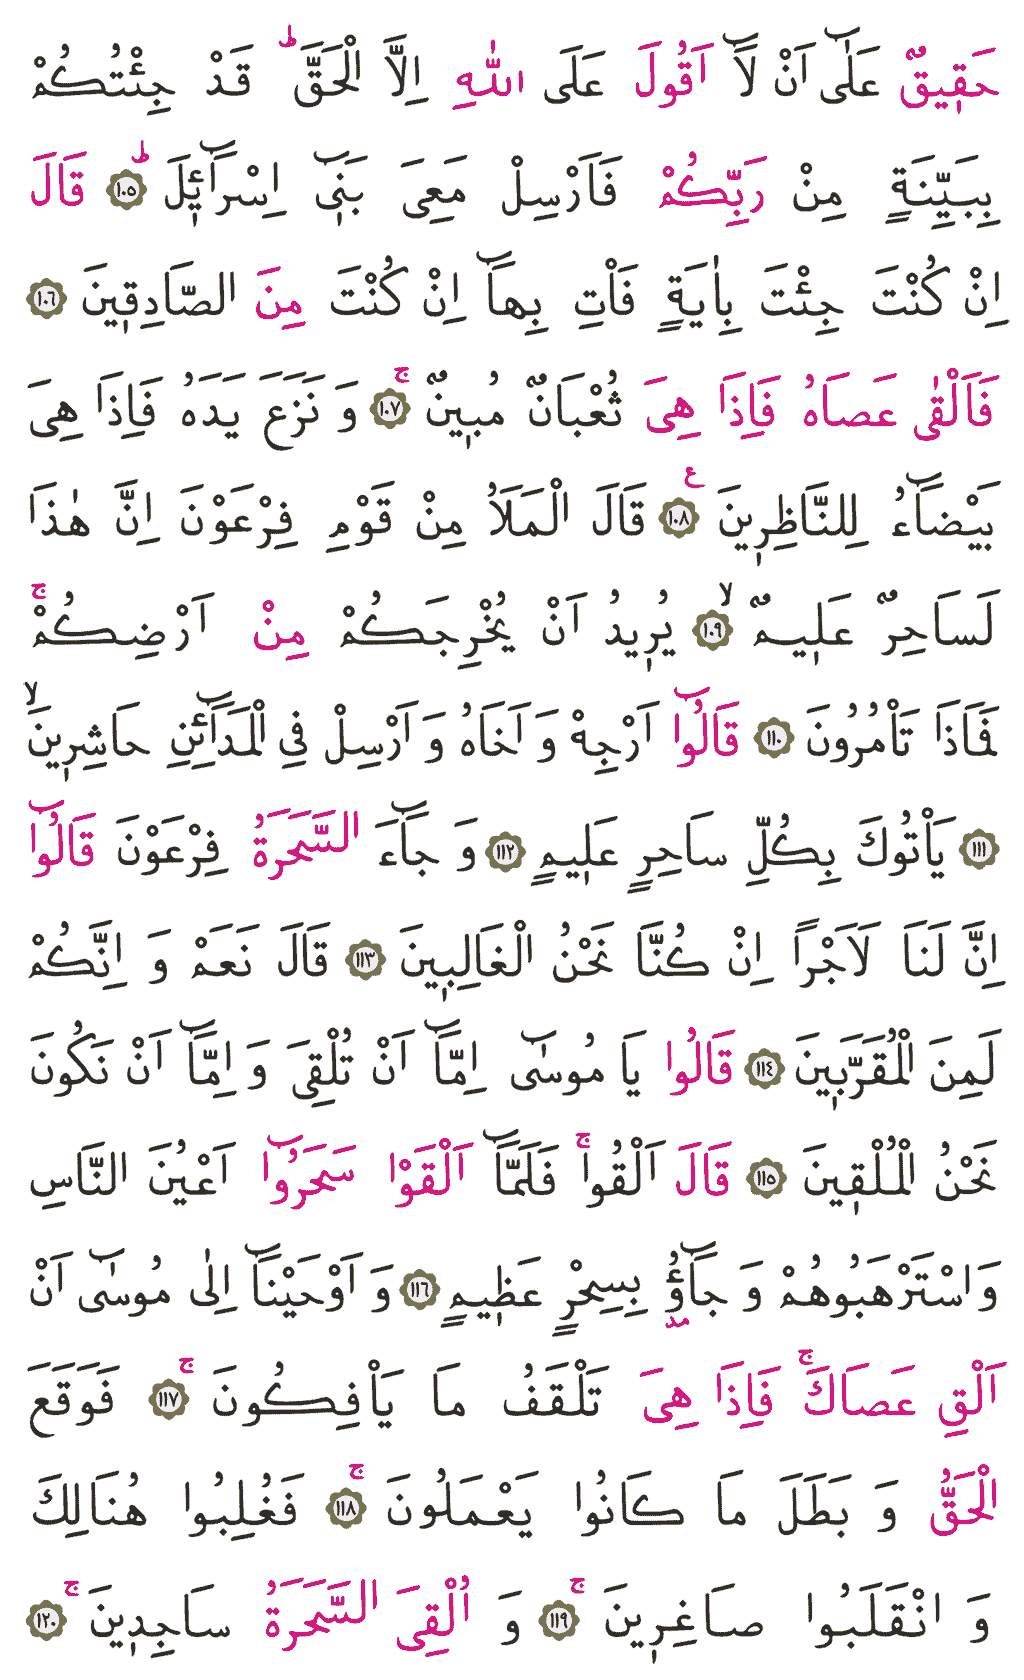 حَقٖيقٌ عَلٰٓى اَنْ لَٓا اَقُولَ عَلَى اللّٰهِ اِلَّا الْحَقَّۜ قَدْ جِئْتُكُمْ
بِبَيِّنَةٍ مِنْ رَبِّكُمْ فَاَرْسِلْ مَعِىَ بَنٖٓى اِسْرَٓائٖلَۜ ﴿١٠٥﴾ قَالَ
اِنْ كُنْتَ جِئْتَ بِاٰيَةٍ فَاْتِ بِهَٓا اِنْ كُنْتَ مِنَ الصَّادِقٖينَ ﴿١٠٦﴾
فَاَلْقٰى عَصَاهُ فَاِذَا هِىَ ثُعْبَانٌ مُبٖينٌۚ ﴿١٠٧﴾ وَ نَزَعَ يَدَهُ فَاِذَا هِىَ
بَيْضَٓاءُ لِلنَّاظِرٖينَ ﴿١٠٨﴾ ع قَالَ الْمَلَاُ مِنْ قَوْمِ فِرْعَوْنَ اِنَّ هٰذَا
لَسَاحِرٌ عَلٖيمٌۙ ﴿١٠٩﴾ يُرٖيدُ اَنْ يُخْرِجَكُمْ مِنْ اَرْضِكُمْۚ
فَمَاذَا تَاْمُرُونَ ﴿١١٠﴾ قَالُٓوا اَرْجِهْ وَ اَخَاهُ وَ اَرْسِلْ فِى الْمَدَٓائِنِ حَاشِرٖينَۙ
﴿١١١﴾ يَاْتُوكَ بِكُلِّ سَاحِرٍ عَلٖيمٍ ﴿١١٢﴾ وَ جَٓاءَ السَّحَرَةُ فِرْعَوْنَ قَالُٓوا
اِنَّ لَنَا لَاَجْرًا اِنْ كُنَّا نَحْنُ الْغَالِبٖينَ ﴿١١٣﴾ قَالَ نَعَمْ وَ اِنَّكُمْ
لَمِنَ الْمُقَرَّبٖينَ ﴿١١٤﴾ قَالُوا يَا مُوسٰٓى اِمَّٓا اَنْ تُلْقِىَ وَ اِمَّٓا اَنْ نَكُونَ
نَحْنُ الْمُلْقٖينَ ﴿١١٥﴾ قَالَ اَلْقُواۚ فَلَمَّٓا اَلْقَوْا سَحَرُٓوا اَعْيُنَ النَّاسِ
وَاسْتَرْهَبُوهُمْ وَ جَٓاؤُ مد بِسِحْرٍ عَظٖيمٍ ﴿١١٦﴾ وَ اَوْحَيْنَٓا اِلٰى مُوسٰٓى اَنْ
اَلْقِ عَصَاكَۚ فَاِذَا هِىَ تَلْقَفُ مَا يَاْفِكُونَۚ ﴿١١٧﴾ فَوَقَعَ
الْحَقُّ وَ بَطَلَ مَا كَانُوا يَعْمَلُونَۚ ﴿١١٨﴾ فَغُلِبُوا هُنَالِكَ
وَ انْقَلَبُوا صَاغِرٖينَۚ ﴿١١٩﴾ وَ اُلْقِىَ السَّحَرَةُ سَاجِدٖينَۚ ﴿١٢٠﴾